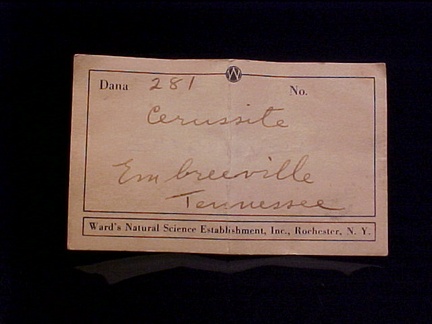 W
Dana 281 No.
Cerussite
Embreeville
Tennessee
Ward's Natural Science Establishment, Inc., Rochester, N. Y.